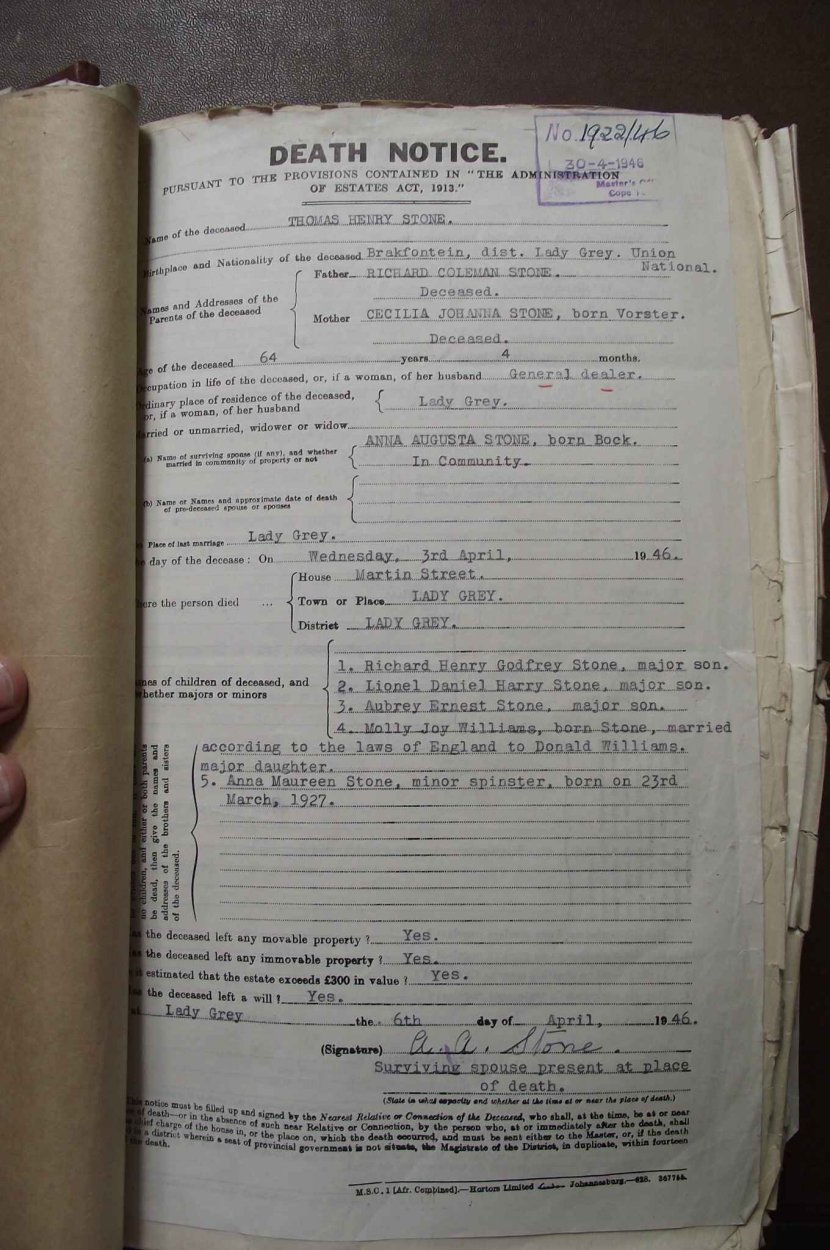 No. 1922/46
30-4-1946
Master's
Cope
DEATH NOTICE.
PURSUANT TO THE PROVISIONS CONTAINED IN "THE ADMINISTRATION
OF ESTATES ACT, 1913."
Name of the deceased THOMAS HENRY STONE.
Birthplace and Nationality of the deceased Brakfontein, dist. Lady Grey. Union
National.
Names and Addresses of the
Parents of the deceased
Father RICHARD COLEMAN STONE.
Deceased.
Mother CECILIA JOHANNA STONE, born Vorster.
Deceased.
Age of the deceased 64 years 4 months.
Occupation in life of the deceased, or, if a woman, of her husband General dealer.
Ordinary place of residence of the deceased,
or, if a woman, of her husband
Lady Grey.
Married or unmarried, widower or widow
(a) Name of surviving spouse (if any), and whether
married in community of property or not
ANNA AUGUSTA STONE, born Bock.
In Community.
(b) Name or Names and approximate date of death
of pre-deceased spouse or spouses
Place of last marriage Lady Grey.
The day of the decease: On Wednesday, 3rd April, 1946.
Where the person died ...
House Martin Street.
Town or Place LADY GREY.
District LADY GREY.
Names of children of deceased, and
whether majors or minors
1. Richard Henry Godfrey Stone, major son.
2. Lionel Daniel Harry Stone, major son.
3. Aubrey Ernest Stone, major son.
4. Molly Joy Williams, born Stone, married
according to the laws of England to Donald Williams.
major daughter.
5. Anna Maureen Stone, minor spinster, born on 23rd
March, 1927.
no children, and either or both parents
be dead, then give the names and
addresses of the brothers and sisters
of the deceased.
Has the deceased left any movable property? Yes.
Has the deceased left any immovable property? Yes.
Is it estimated that the estate exceeds £300 in value? Yes.
Has the deceased left a will? Yes.
at Lady Grey the 6th day of April, 1946.
(Signature) A. A. Stone.
Surviving spouse present at place
of death.
(State in what capacity and whether at the time at or near the place of death.)
This notice must be filled up and signed by the Nearest Relative or Connection of the Deceased, who shall, at the time, be at or near
of death—or in the absence of such near Relative or Connection, by the person who, at or immediately after the death, shall
chief charge of the house in, or the place on, which the death occurred, and must be sent either to the Master, or, if the death
in a district wherein a seat of provincial government is not situate, the Magistrate of the District, in duplicate, within fourteen
the death.
M.S.C. 1 [Afr. Combined].—Hortors Limited Johannesburg.—628. 36775b.